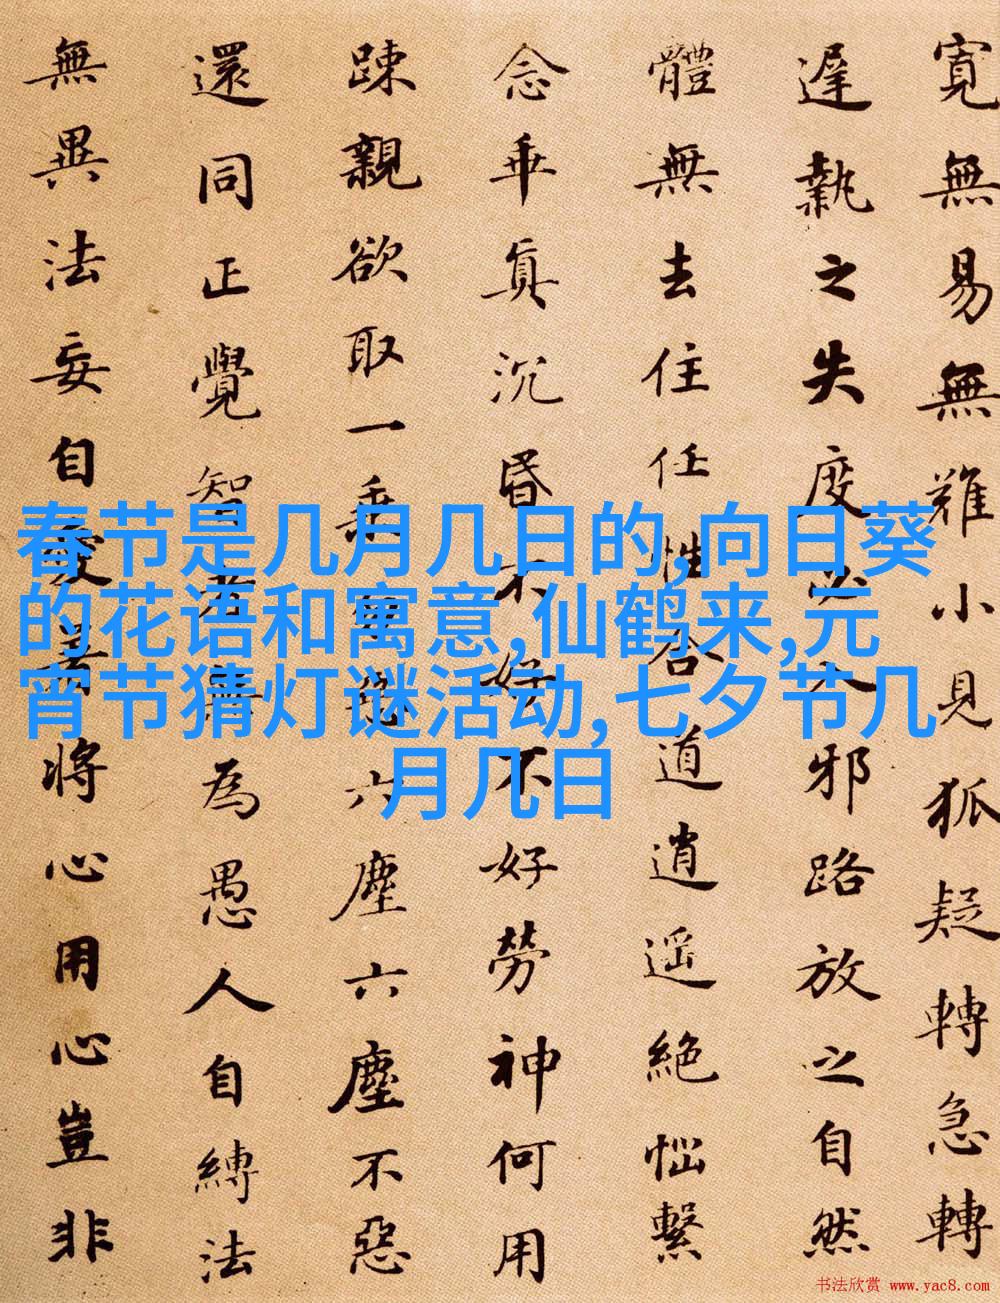 寬無易無難小見狐疑轉急轉
遲執之失度必入邪路放之自然
體無去住任性合道逍遥絶惱繫
念乖真沉昏不好不好勞神何用
踈親欲取一乘勿惡六塵六塵不惡
還同正覺智者無為愚人自縛法
無異法妄自愛著將心用心豈非
春节是几月几日的,向日葵
的花语和寓意,仙鹤来,元
宵节猜灯谜活动,七夕节几
月几日
书法欣赏 www.yac8.com